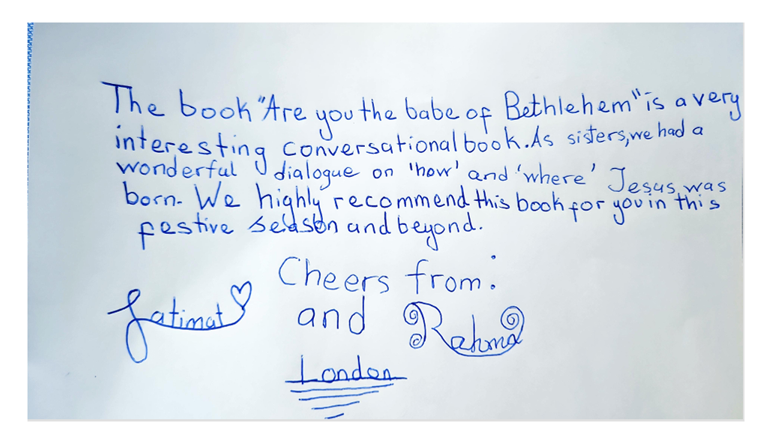 The book "Are you the babe of Bethlehem" is a very
interesting conversational book. As sisters, we had a
wonderful dialogue on 'how' and 'where' Jesus was
born. We highly recommend this book for you in this
festive season and beyond.
Cheers from:
Fatimat and Rahma
London